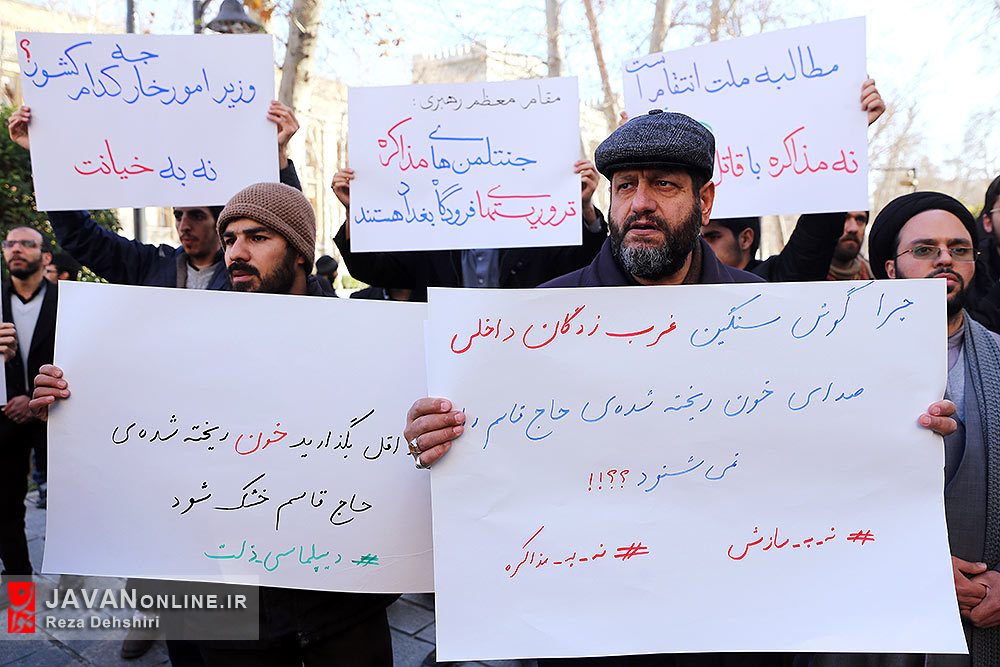 وزیر امور خارجه کدام کشور؟
نه به خیانت
مقام معظم رهبری:
جنتلمن های مذاکره
تروریستهای فرودگاه بغداد هستند
مطالبه ملت انتقام است
نه مذاکره با قاتل
اقل بگذارید خون ریخته شده‌ی
حاج قاسم خشک شود
#دیپلماسی_ذلت
چرا گوش سنگین غرب زدگان داخلی
صدای خون ریخته شده‌ی حاج قاسم را
نمی شنود ؟؟!!
#نه_به_سازش
#نه_به_مذاکره
JAVANONLINE.IR
Reza Dehshiri